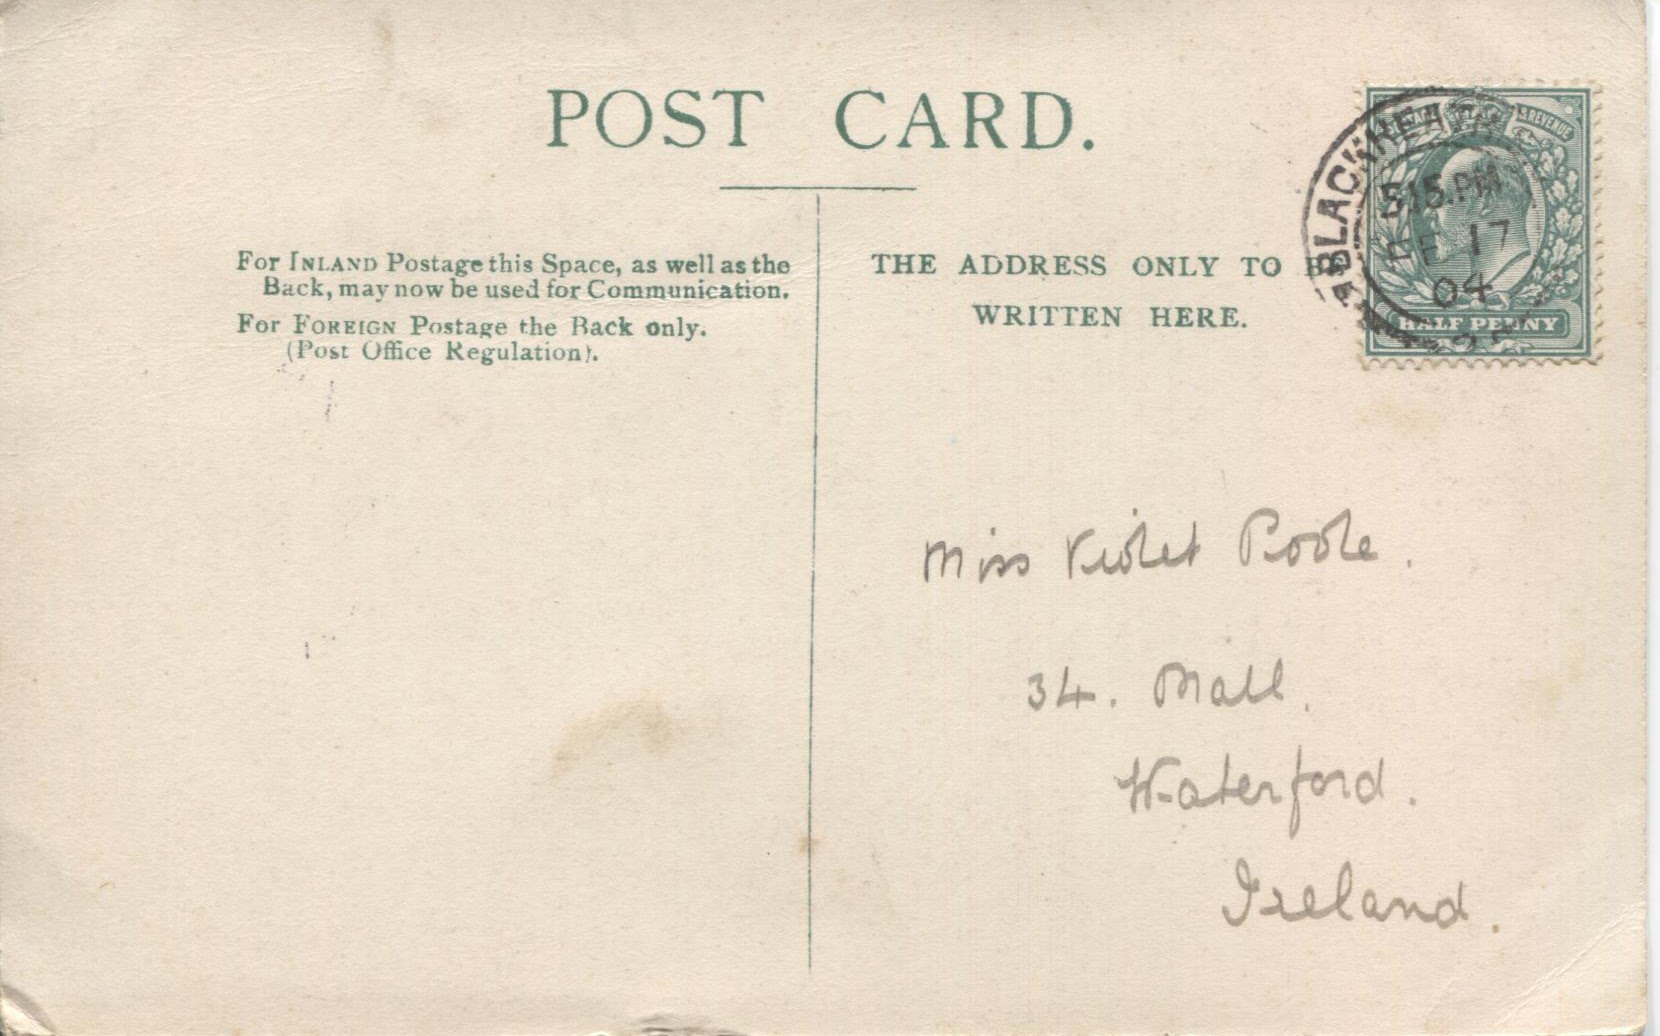 POST CARD.
For INLAND Postage this Space, as well as the
Back, may now be used for Communication.
For FOREIGN Postage the Back only.
(Post Office Regulation).
THE ADDRESS ONLY TO B
WRITTEN HERE.
REVENUE
HALF PENNY
BLACKHEATH
515.PM
FE 17
04
Miss Violet Poole.
34. Mall.
Waterford.
Ireland.